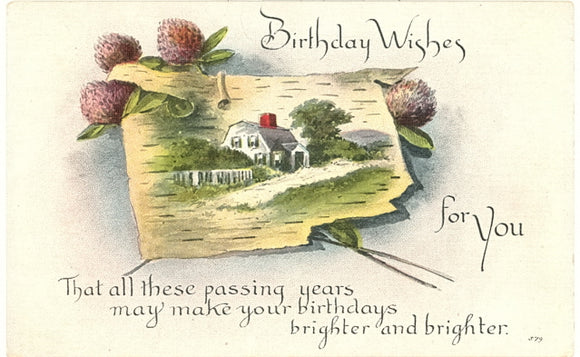 Birthday Wishes
for You
That all these passing years
may make your birthdays
brighter and brighter.
379